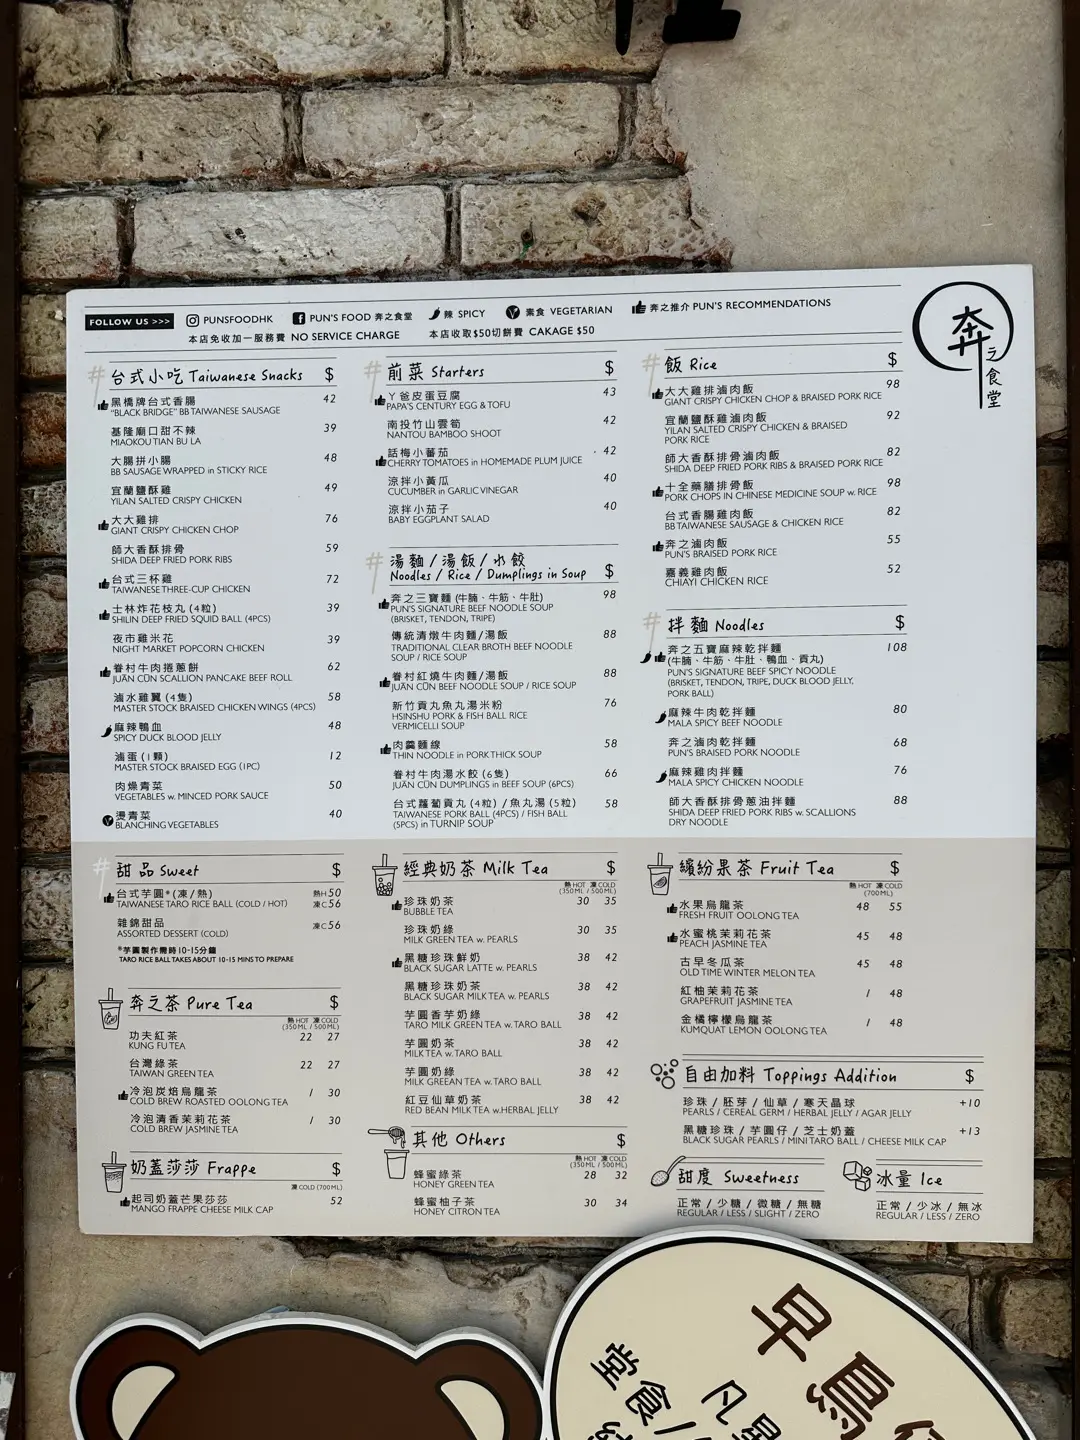 FOLLOW US >>> PUNSFOODHK PUN'S FOOD 奔之食堂 辣 SPICY 素食 VEGETARIAN 奔之推介 PUN'S RECOMMENDATIONS
本店免收加一服務費 NO SERVICE CHARGE 本店收取$50切餅費 CAKAGE $50
奔之食堂
# 台式小吃 Taiwanese Snacks $
黑橋牌台式香腸 42
"BLACK BRIDGE" BB TAIWANESE SAUSAGE
基隆廟口甜不辣 39
MIAOKOU TIAN BU LA
大腸拼小腸 48
BB SAUSAGE WRAPPED in STICKY RICE
宜蘭鹽酥雞 49
YILAN SALTED CRISPY CHICKEN
大大雞排 76
GIANT CRISPY CHICKEN CHOP
師大香酥排骨 59
SHIDA DEEP FRIED PORK RIBS
台式三杯雞 72
TAIWANESE THREE-CUP CHICKEN
士林炸花枝丸 (4粒) 39
SHILIN DEEP FRIED SQUID BALL (4PCS)
夜市雞米花 39
NIGHT MARKET POPCORN CHICKEN
眷村牛肉捲蔥餅 62
JUÀN CŪN SCALLION PANCAKE BEEF ROLL
滷水雞翼 (4隻) 58
MASTER STOCK BRAISED CHICKEN WINGS (4PCS)
麻辣鴨血 48
SPICY DUCK BLOOD JELLY
滷蛋 (1顆) 12
MASTER STOCK BRAISED EGG (1PC)
肉燥青菜 50
VEGETABLES w. MINCED PORK SAUCE
燙青菜 40
BLANCHING VEGETABLES
# 前菜 Starters $
丫爸皮蛋豆腐 43
PAPA'S CENTURY EGG & TOFU
南投竹山雲筍 42
NANTOU BAMBOO SHOOT
話梅小蕃茄 42
CHERRY TOMATOES in HOMEMADE PLUM JUICE
涼拌小黃瓜 40
CUCUMBER in GARLIC VINEGAR
涼拌小茄子 40
BABY EGGPLANT SALAD
# 湯麵 / 湯飯 / 水餃
Noodles / Rice / Dumplings in Soup $
奔之三寶麵 (牛腩、牛筋、牛肚) 98
PUN'S SIGNATURE BEEF NOODLE SOUP
(BRISKET, TENDON, TRIPE)
傳統清燉牛肉麵/湯飯 88
TRADITIONAL CLEAR BROTH BEEF NOODLE
SOUP / RICE SOUP
眷村紅燒牛肉麵/湯飯 88
JUÀN CŪN BEEF NOODLE SOUP / RICE SOUP
新竹貢丸魚丸湯米粉 76
HSINSHU PORK & FISH BALL RICE
VERMICELLI SOUP
肉羹麵線 58
THIN NOODLE in PORK THICK SOUP
眷村牛肉湯水餃 (6隻) 66
JUÀN CŪN DUMPLINGS in BEEF SOUP (6PCS)
台式蘿蔔貢丸 (4粒) / 魚丸湯 (5粒) 58
TAIWANESE PORK BALL (4PCS) / FISH BALL
(5PCS) in TURNIP SOUP
# 飯 Rice $
大大雞排滷肉飯 98
GIANT CRISPY CHICKEN CHOP & BRAISED PORK RICE
宜蘭鹽酥雞滷肉飯 92
YILAN SALTED CRISPY CHICKEN & BRAISED
PORK RICE
師大香酥排骨滷肉飯 82
SHIDA DEEP FRIED PORK RIBS & BRAISED PORK RICE
十全藥膳排骨飯 98
PORK CHOPS IN CHINESE MEDICINE SOUP w. RICE
台式香腸雞肉飯 82
BB TAIWANESE SAUSAGE & CHICKEN RICE
奔之滷肉飯 55
PUN'S BRAISED PORK RICE
嘉義雞肉飯 52
CHIAYI CHICKEN RICE
# 拌麵 Noodles $
奔之五寶麻辣乾拌麵 108
(牛腩、牛筋、牛肚、鴨血、貢丸)
PUN'S SIGNATURE BEEF SPICY NOODLE
(BRISKET, TENDON, TRIPE, DUCK BLOOD JELLY,
PORK BALL)
麻辣牛肉乾拌麵 80
MALA SPICY BEEF NOODLE
奔之滷肉乾拌麵 68
PUN'S BRAISED PORK NOODLE
麻辣雞肉拌麵 76
MALA SPICY CHICKEN NOODLE
師大香酥排骨蔥油拌麵 88
SHIDA DEEP FRIED PORK RIBS w. SCALLIONS
DRY NOODLE
# 甜品 Sweet $
台式芋圓* (凍 / 熱) 熱H 50
TAIWANESE TARO RICE BALL (COLD / HOT) 凍C 56
雜錦甜品 凍C 56
ASSORTED DESSERT (COLD)
*芋圓製作需時10-15分鐘
TARO RICE BALL TAKES ABOUT 10-15 MINS TO PREPARE
奔之茶 Pure Tea $
熱 HOT 凍 COLD
(350ML / 500ML)
功夫紅茶 22 27
KUNG FU TEA
台灣綠茶 22 27
TAIWAN GREEN TEA
冷泡炭焙烏龍茶 / 30
COLD BREW ROASTED OOLONG TEA
冷泡清香茉莉花茶 / 30
COLD BREW JASMINE TEA
奶蓋莎莎 Frappe $
凍 COLD (700ML)
起司奶蓋芒果莎莎 52
MANGO FRAPPE CHEESE MILK CAP
經典奶茶 Milk Tea $
熱 HOT 凍 COLD
(350ML / 500ML)
珍珠奶茶 30 35
BUBBLE TEA
珍珠奶綠 30 35
MILK GREEN TEA w. PEARLS
黑糖珍珠鮮奶 38 42
BLACK SUGAR LATTE w. PEARLS
黑糖珍珠奶茶 38 42
BLACK SUGAR MILK TEA w. PEARLS
芋圓香芋奶綠 38 42
TARO MILK GREEN TEA w. TARO BALL
芋圓奶茶 38 42
MILK TEA w. TARO BALL
芋圓奶綠 38 42
MILK GREEAN TEA w. TARO BALL
紅豆仙草奶茶 38 42
RED BEAN MILK TEA w.HERBAL JELLY
其他 Others $
熱 HOT 凍 COLD
(350ML / 500ML)
蜂蜜綠茶 28 32
HONEY GREEN TEA
蜂蜜柚子茶 30 34
HONEY CITRON TEA
繽紛果茶 Fruit Tea $
熱 HOT 凍 COLD
(700ML)
水果烏龍茶 48 55
FRESH FRUIT OOLONG TEA
水蜜桃茉莉花茶 45 48
PEACH JASMINE TEA
古早冬瓜茶 45 48
OLD TIME WINTER MELON TEA
紅柚茉莉花茶 / 48
GRAPEFRUIT JASMINE TEA
金橘檸檬烏龍茶 / 48
KUMQUAT LEMON OOLONG TEA
自由加料 Toppings Addition $
珍珠 / 胚芽 / 仙草 / 寒天晶球 +10
PEARLS / CEREAL GERM / HERBAL JELLY / AGAR JELLY
黑糖珍珠 / 芋圓仔 / 芝士奶蓋 +13
BLACK SUGAR PEARLS / MINI TARO BALL / CHEESE MILK CAP
甜度 Sweetness
正常 / 少糖 / 微糖 / 無糖
REGULAR / LESS / SLIGHT / ZERO
冰量 Ice
正常 / 少冰 / 無冰
REGULAR / LESS / ZERO
早鳥
凡星
堂食/